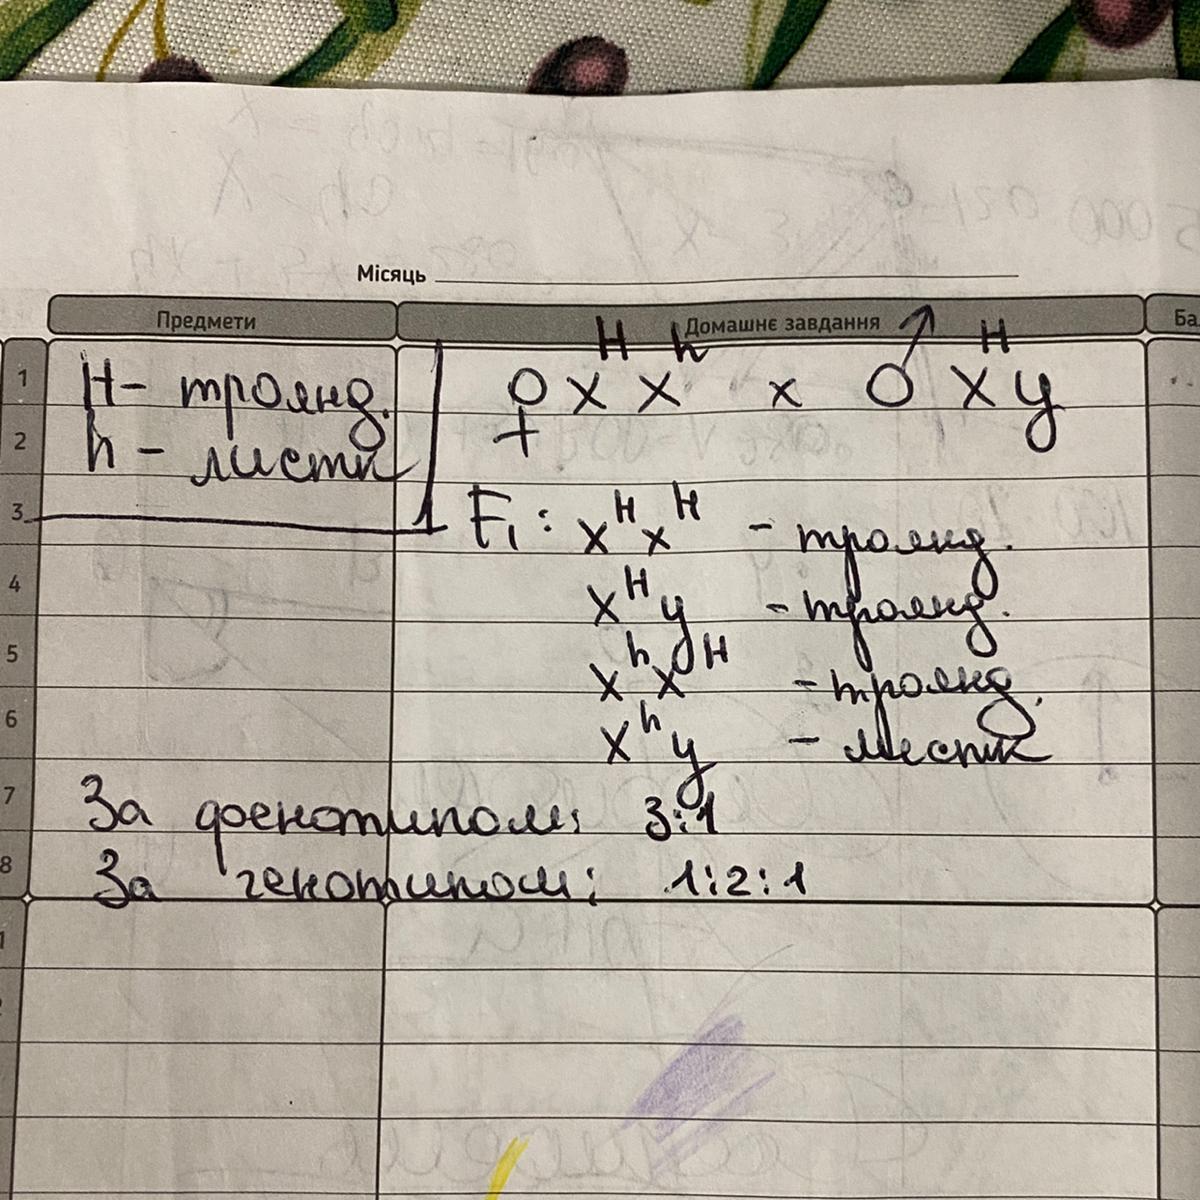 Місяць
Предмети
Домашнє завдання
Ба
1 H - троянд. ♀ X^H X^h x ♂ X^H y
2 h - листк
3 F₁: X^H X^H - троянд.
4 X^H y - троянд.
5 X^h X^H - троянд.
6 X^h y - листк
7 За фенотипом: 3:1
8 За генотипом: 1:2:1
1